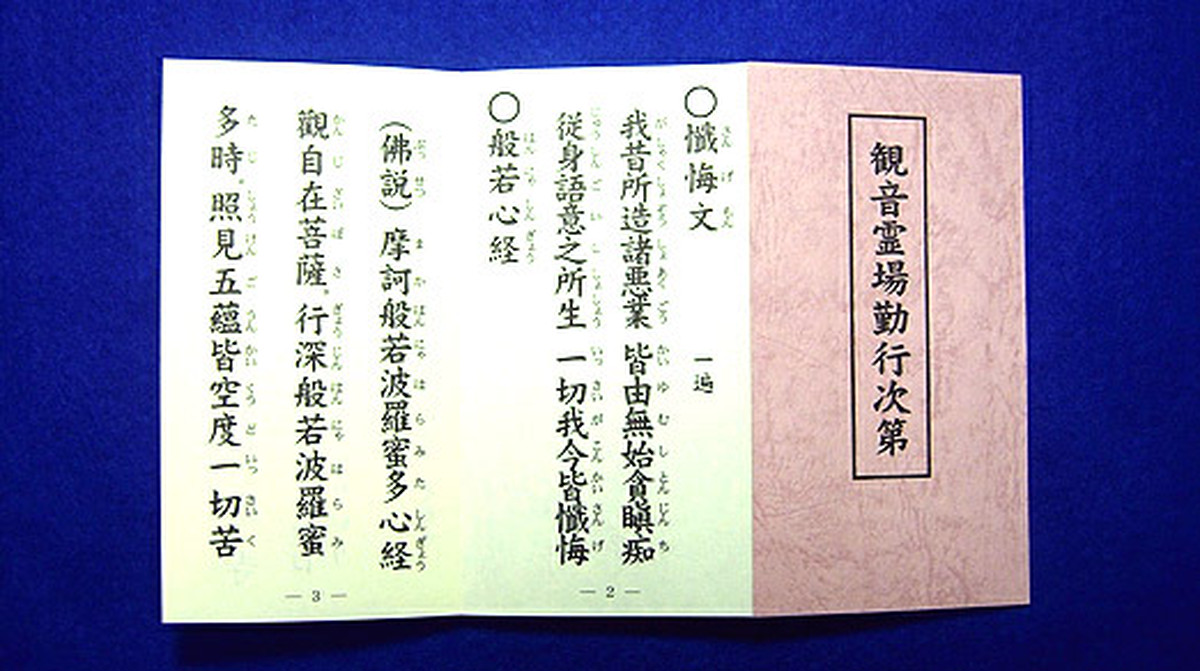 観音霊場勤行次第
○懺悔文 一遍
我昔所造諸悪業 皆由無始貪瞋痴
従身語意之所生 一切我今皆懺悔
○般若心経
— 2 —
(佛説)摩訶般若波羅蜜多心経
觀自在菩薩。行深般若波羅蜜
多時。照見五蘊皆空度一切苦
— 3 —